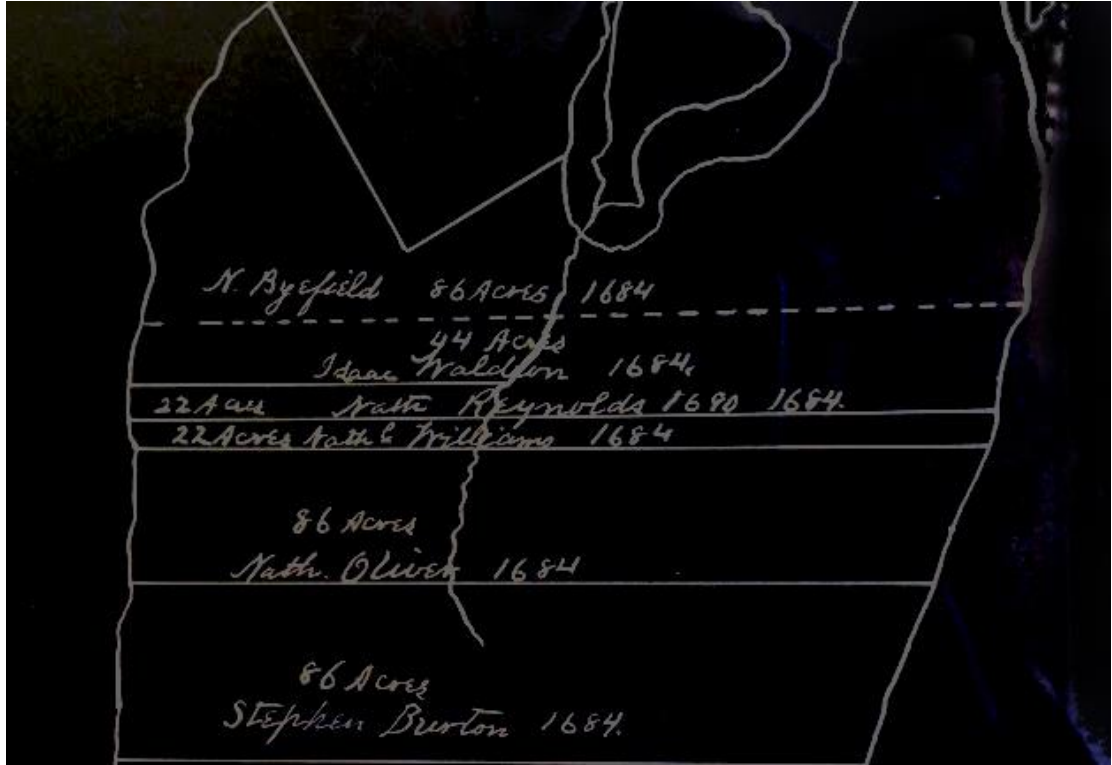 N. Byefield 86 Acres 1684
44 Acres
Isaac Waldron 1684.
22 Acres Nath Reynolds 1690 1684.
22 Acres Nath l Williams 1684
86 Acres
Nath. Oliver 1684
86 Acres
Stephen Burton 1684.